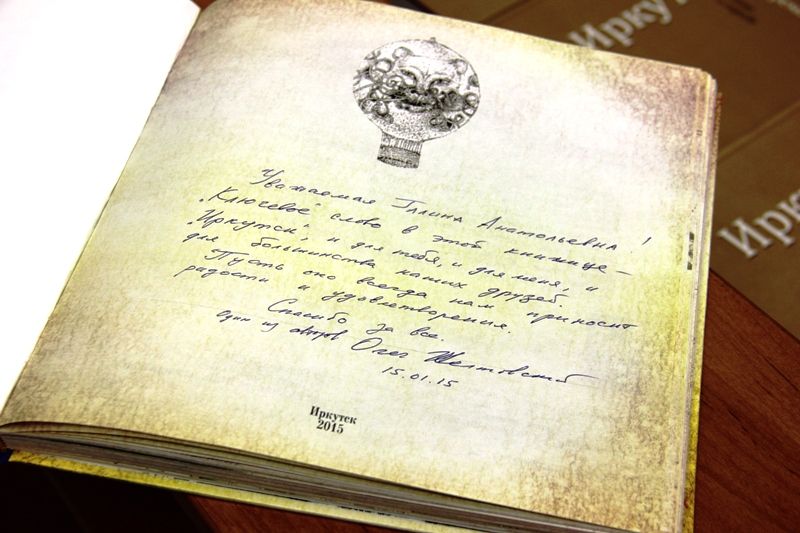 Ирку
Ирк
Уважаемая Галина Анатольевна!
„Ключевое" слово в этой книжице –
„Иркутск", и для тебя, и для меня, и
для большинства наших друзей.
Пусть оно всегда нам приносит
радости и удовлетворения.
Спасибо за все.
один из авторов Олег Желтовский
15.01.15
Иркутск
2015